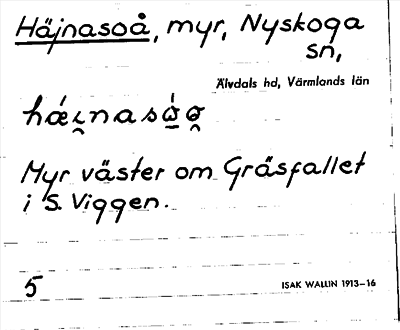 Häjnasoå, myr, Nyskoga
sn,
Älvdals hd, Värmlands län
Myr väster om Gräsfallet
i S. Viggen.
5
ISAK WALLIN 1913–16